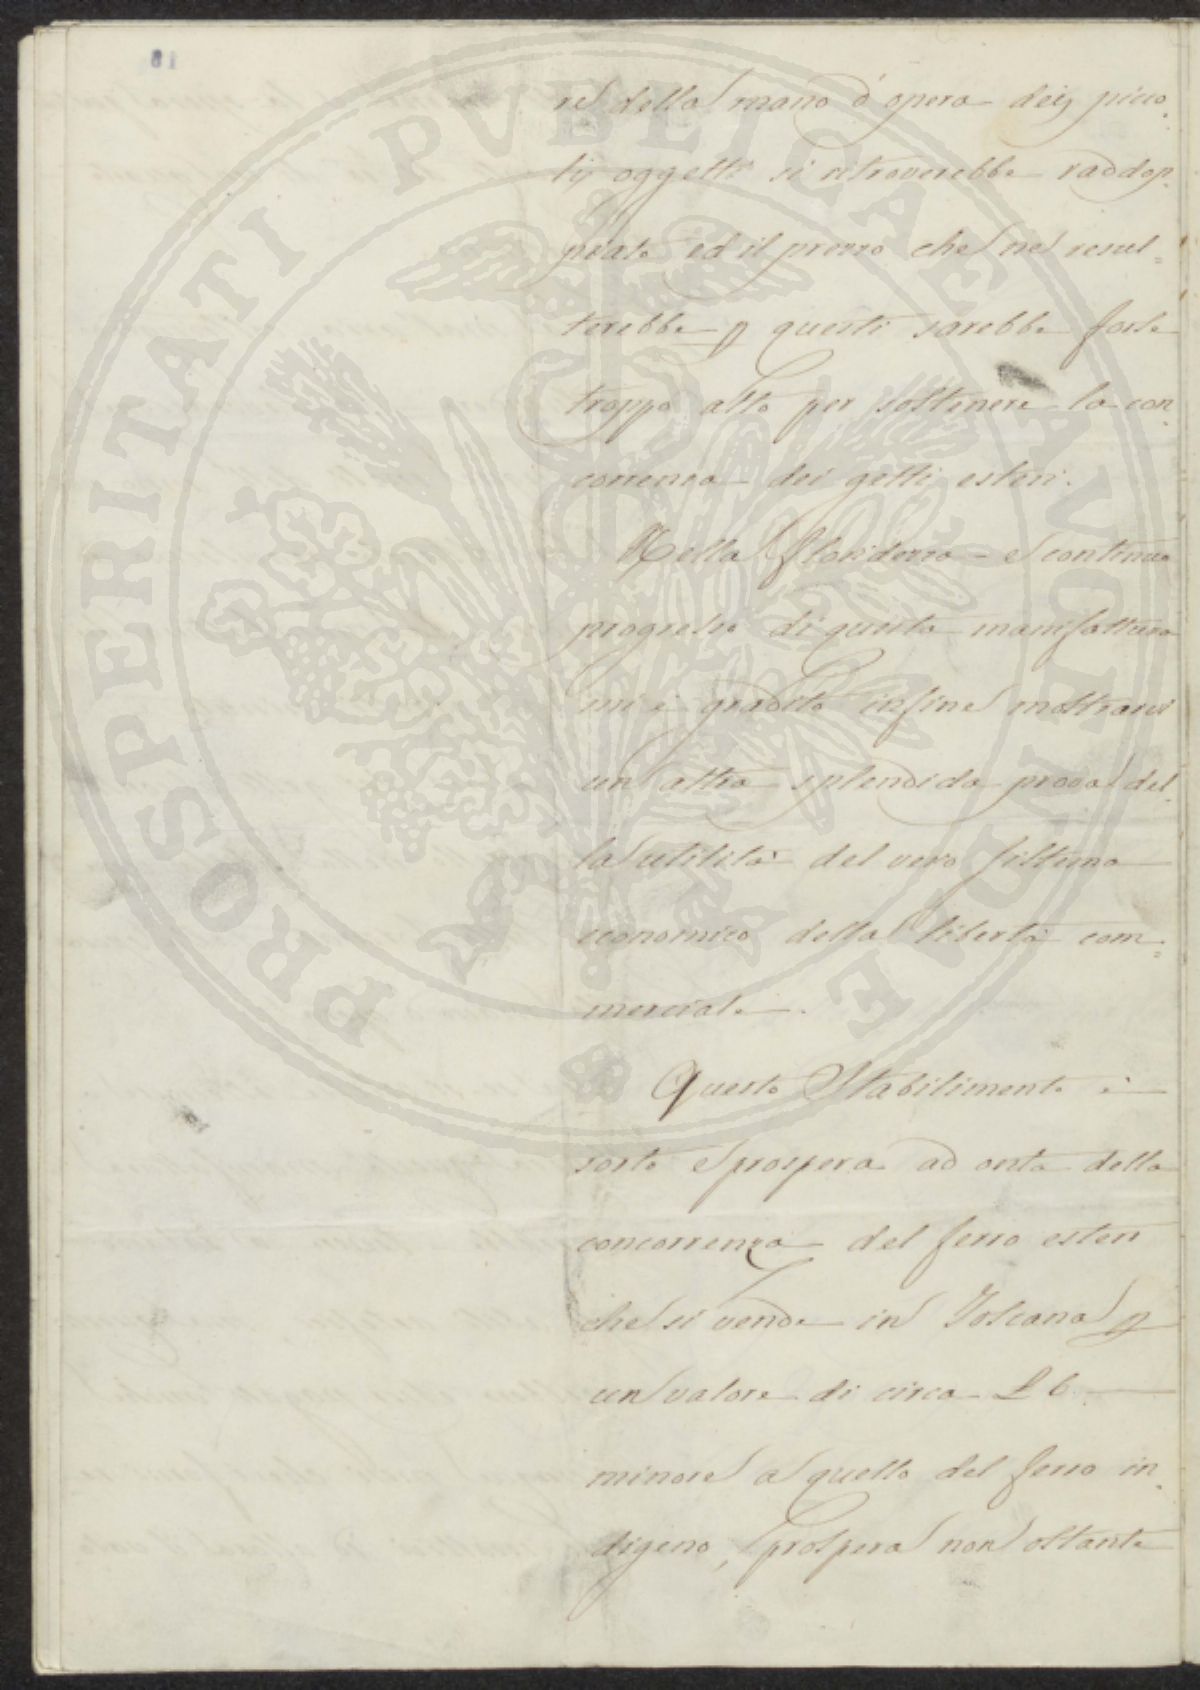 re della mano d'opera dei picco=
li oggetti si ritroverebbe raddop=
piato ed il prezzo che ne resul=
terebbe p questi sarebbe forse
troppo alto per sostenere la con=
correnza dei getti esteri.
Nella floridezza e continuo
progresso di questa manifattura
mi è gradito infine mostrarvi
un altra splendida prova del=
la utilità del vero sistema
economico della libertà com=
merciale.
Questo Stabilimento è
sorto e prospera ad onta della
concorrenza del ferro estero
che si vende in Toscana p
un valore di circa £ 6
minore a quello del ferro in=
digeno, prospera non ostante
PROSPERITATI PVBLICAE AVGENDAE